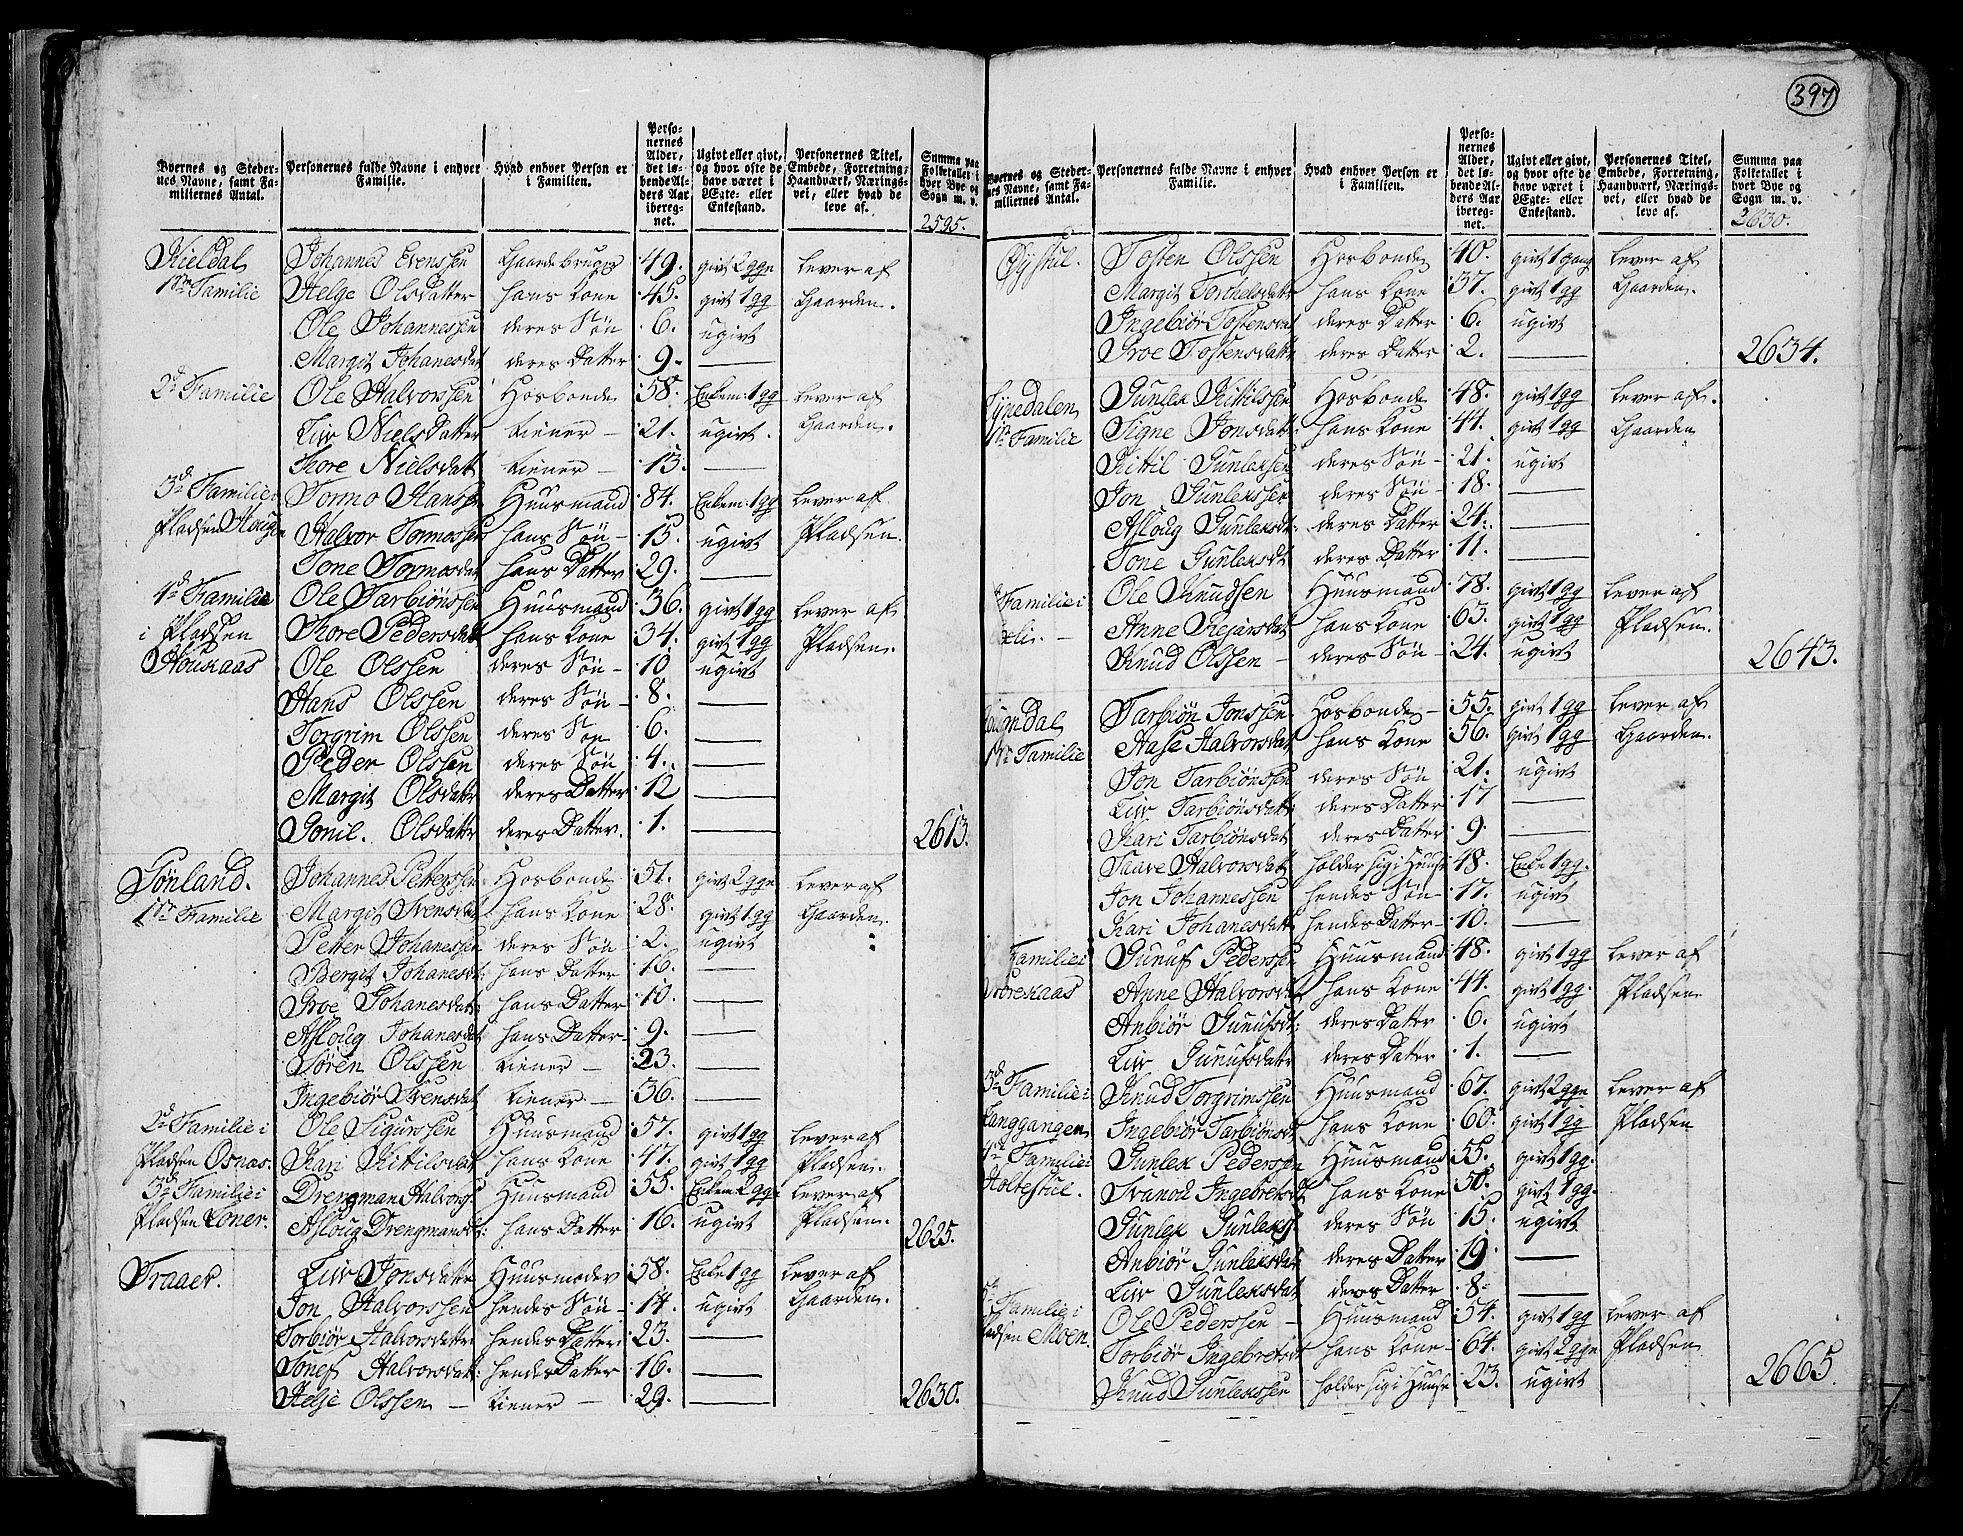 397
Byernes og Stedernes Navne, samt Familiernes Antal. | Personernes fulde Navne i enhver Familie. | Hvad enhver Person er i Familien. | Personernes Alder, det løbende Alders Aar iberegnet. | Ugivt eller givt, og hvor ofte de have været i Ægte- eller Enkestand. | Personernes Titel, Embede, Forretning, Haandværk, Næringsvei, eller hvad de leve af. | Summa paa Folketallet i hver Bye og Sogn m. v.
2595.
Kieldal | Johannes Evenssen | Gaardebruger | 49. | givt 2 gge | lever af
1ste Familie | Helge Olsdatter | hans Kone | 45. | givt 1 gg | Gaarden.
Ole Johannessen | deres Søn | 6. | ugivt
Margit Johanesdat | deres Datter | 9. | —
2d Familie | Ole Halvorssen | Hosbonde | 58. | Enkem: 1 gg | lever af
Liv Nielsdatter | tiener — | 21. | ugivt. | Gaarden.
Thore Nielsdatt | tiener — | 13. | —
3d Familie i | Tormo Hanss | Huusmand | 84. | Enkem: 1 gg | lever af
Pladsen Hougen | Halvor Tormossen | hans Søn — | 15. | ugivt | Pladsen.
Tone Tormosdat | hans Datter | 29. | —
4de Familie | Ole Tarbiönssen | Huusmand | 36. | givt 1 gg | lever af
i Pladsen | Thore Pedersdatt | hans Kone | 34. | givt 1 gg | Pladsen.
Houkaas | Ole Olssen | deres Søn — | 10. | ugivt
Hans Olssen | deres Søn — | 8. | —
Torgrim Olssen | deres Søn | 6. | —
Peder Olssen | deres Søn | 4. | —
Margit Olsdatr | deres Datter | 12 | —
Gonil. Olsdatter | deres Datter. | 1. | — | 2613.
Sönland. | Johannes Petterssen | Hosbonde | 51. | givt 2 gge | lever af
1ste Familie | Margit Svensdat | hans Kone | 28. | givt 1 gg | Gaarden.
Petter Johanessen | deres Søn — | 2. | ugivt
Bergit Johanesdt: | hans Datter | 16. | —
Groe Johanesdat | hans Datter | 10. | —
Asloug Johanesdat | hans Datter — | 9. | —
Søren Olssen | tiener — | 23. | —
Ingebiør Svensdat | tiener — | 36. | —
2d Familie i | Ole Sigurssen | Huusmand | 57. | givt 1 gg | lever af
Pladsen Osnas. | Kari Kittilsdat | hans Kone | 47. | givt 1 gg | Pladsen.
3d Familie i | Drengman Halvors | Huusmand | 55. | Enkem 2 gge | lever af
Pladsen Loner. | Asloug Drengmansdt: | hans Datter | 16. | ugivt | Pladsen. | 2625.
Traaer. | Liv Jonsdatter | Huusmoder | 58. | Enke 1 gg | lever af
Jon Halvorssen | hendes Søn — | 14. | ugivt | Gaarden.
Torbiør Halvorsdatter | hendes Datter | 23. | —
Tonef Halvorsdatt: | hendes Datter | 16. | —
Helje Olssen — | tiener — | 29. | — | 2630.
Byernes og Stedernes Navne, samt Familiernes Antal. | Personernes fulde Navne i enhver Familie. | Hvad enhver Person er i Familien. | Personernes Alder, det løbende Alders Aar iberegnet. | Ugivt eller givt, og hvor ofte de have været i Ægte- eller Enkestand. | Personernes Titel, Embede, Forretning, Haandværk, Næringsvei, eller hvad de leve af. | Summa paa Folketallet i hver Bye og Sogn m. v.
2630.
Øystul. | Tosten Olssen | Hosbonde | 40. | givt 1 gang | lever af
Margit Torchelsdatt | hans Kone | 37. | givt 1 gg | Gaarden.
Ingebiør Tostensdat | deres Datter | 6. | ugivt
Groe Tostensdatt | deres Datter | 2. | — | 2634.
Tynedalen | Gunlek Kittilssen | Hosbonde | 48. | givt 1 gg | lever af.
1ste Familie | Signe Jonsdatt | hans Kone | 44. | givt 1 gg | Gaarden
Kittil Gunlekssen | deres Søn — | 21. | ugivt
Jon Gunlekssen | deres Søn — | 18. | —
Asloug Gunleksdt: | deres Datter | 24. | —
Tone Gunleksdt | deres Datter | 11. | —
Familie i | Ole Knudsen | Huusmand | 78. | givt 1 gg | lever af
Anne Rejarsdat | hans Kone | 63. | givt 1 gg | Pladsen.
Knud Olssen — | deres Søn — | 24. | ugivt | 2643.
Tarbiön Jonssen | Hosbonde — | 55. | givt 1 gg | lever af
1ste Familie | Aase Halvorsdat | hans Kone | 56. | givt 1 gg | Gaarden.
Jon Tarbiönssen | deres Søn | 21. | ugivt
Liv Tarbiönsdatter | deres Datter | 17 | —
Kari Tarbiönsdat | deres Datter | 9. | —
Taave Halvorsdatt | holder sig i Huuse | 48. | Enke 1 gg.
Jon Johannessen | hendes Søn — | 17. | ugivt
Kari Johanesdatt | hendes Datter — | 10. | —
Familie i | Gunuf Pedersen | Huusmand | 48. | givt 1 gg | lever af
Anne Halvorsdt | hans Kone | 44. | givt 1 gg. | Pladsen
Anbiör Gunufsdt: | deres Datter | 6. | ugivt
Liv Gunufsdattr | deres Datter | 1. | —
3d Familie i | Knud Torgrimssen | Huusmand | 67. | givt 2 gge | lever af
Langgangen | Ingebiør Tarbiönsdt | hans Kone | 60. | givt 1 gg | Pladsen
4de Familie i | Gunlek Pedersen | Huusmand | 55. | givt 1 gg.
Holtestul. | Svanou Ingebretsdt | hans Kone | 50. | givt 1 gg.
Gunlek Gunleks | deres Søn | 15. | ugivt
Anbiör Gunleksdat | deres Datter | 19. | —
Liv Gunleksdat | deres Datter | 8. | —
Familie i | Ole Pederssen — | Huusmand | 54. | givt 1 gg | lever af
Pladsen Moen. | Torbiør Ingebretsdt | hans Kone — | 64. | givt 2 gge | Pladsen
Knud Gunlekssen | holder sig i Huuse | 23. | ugivt | 2665.